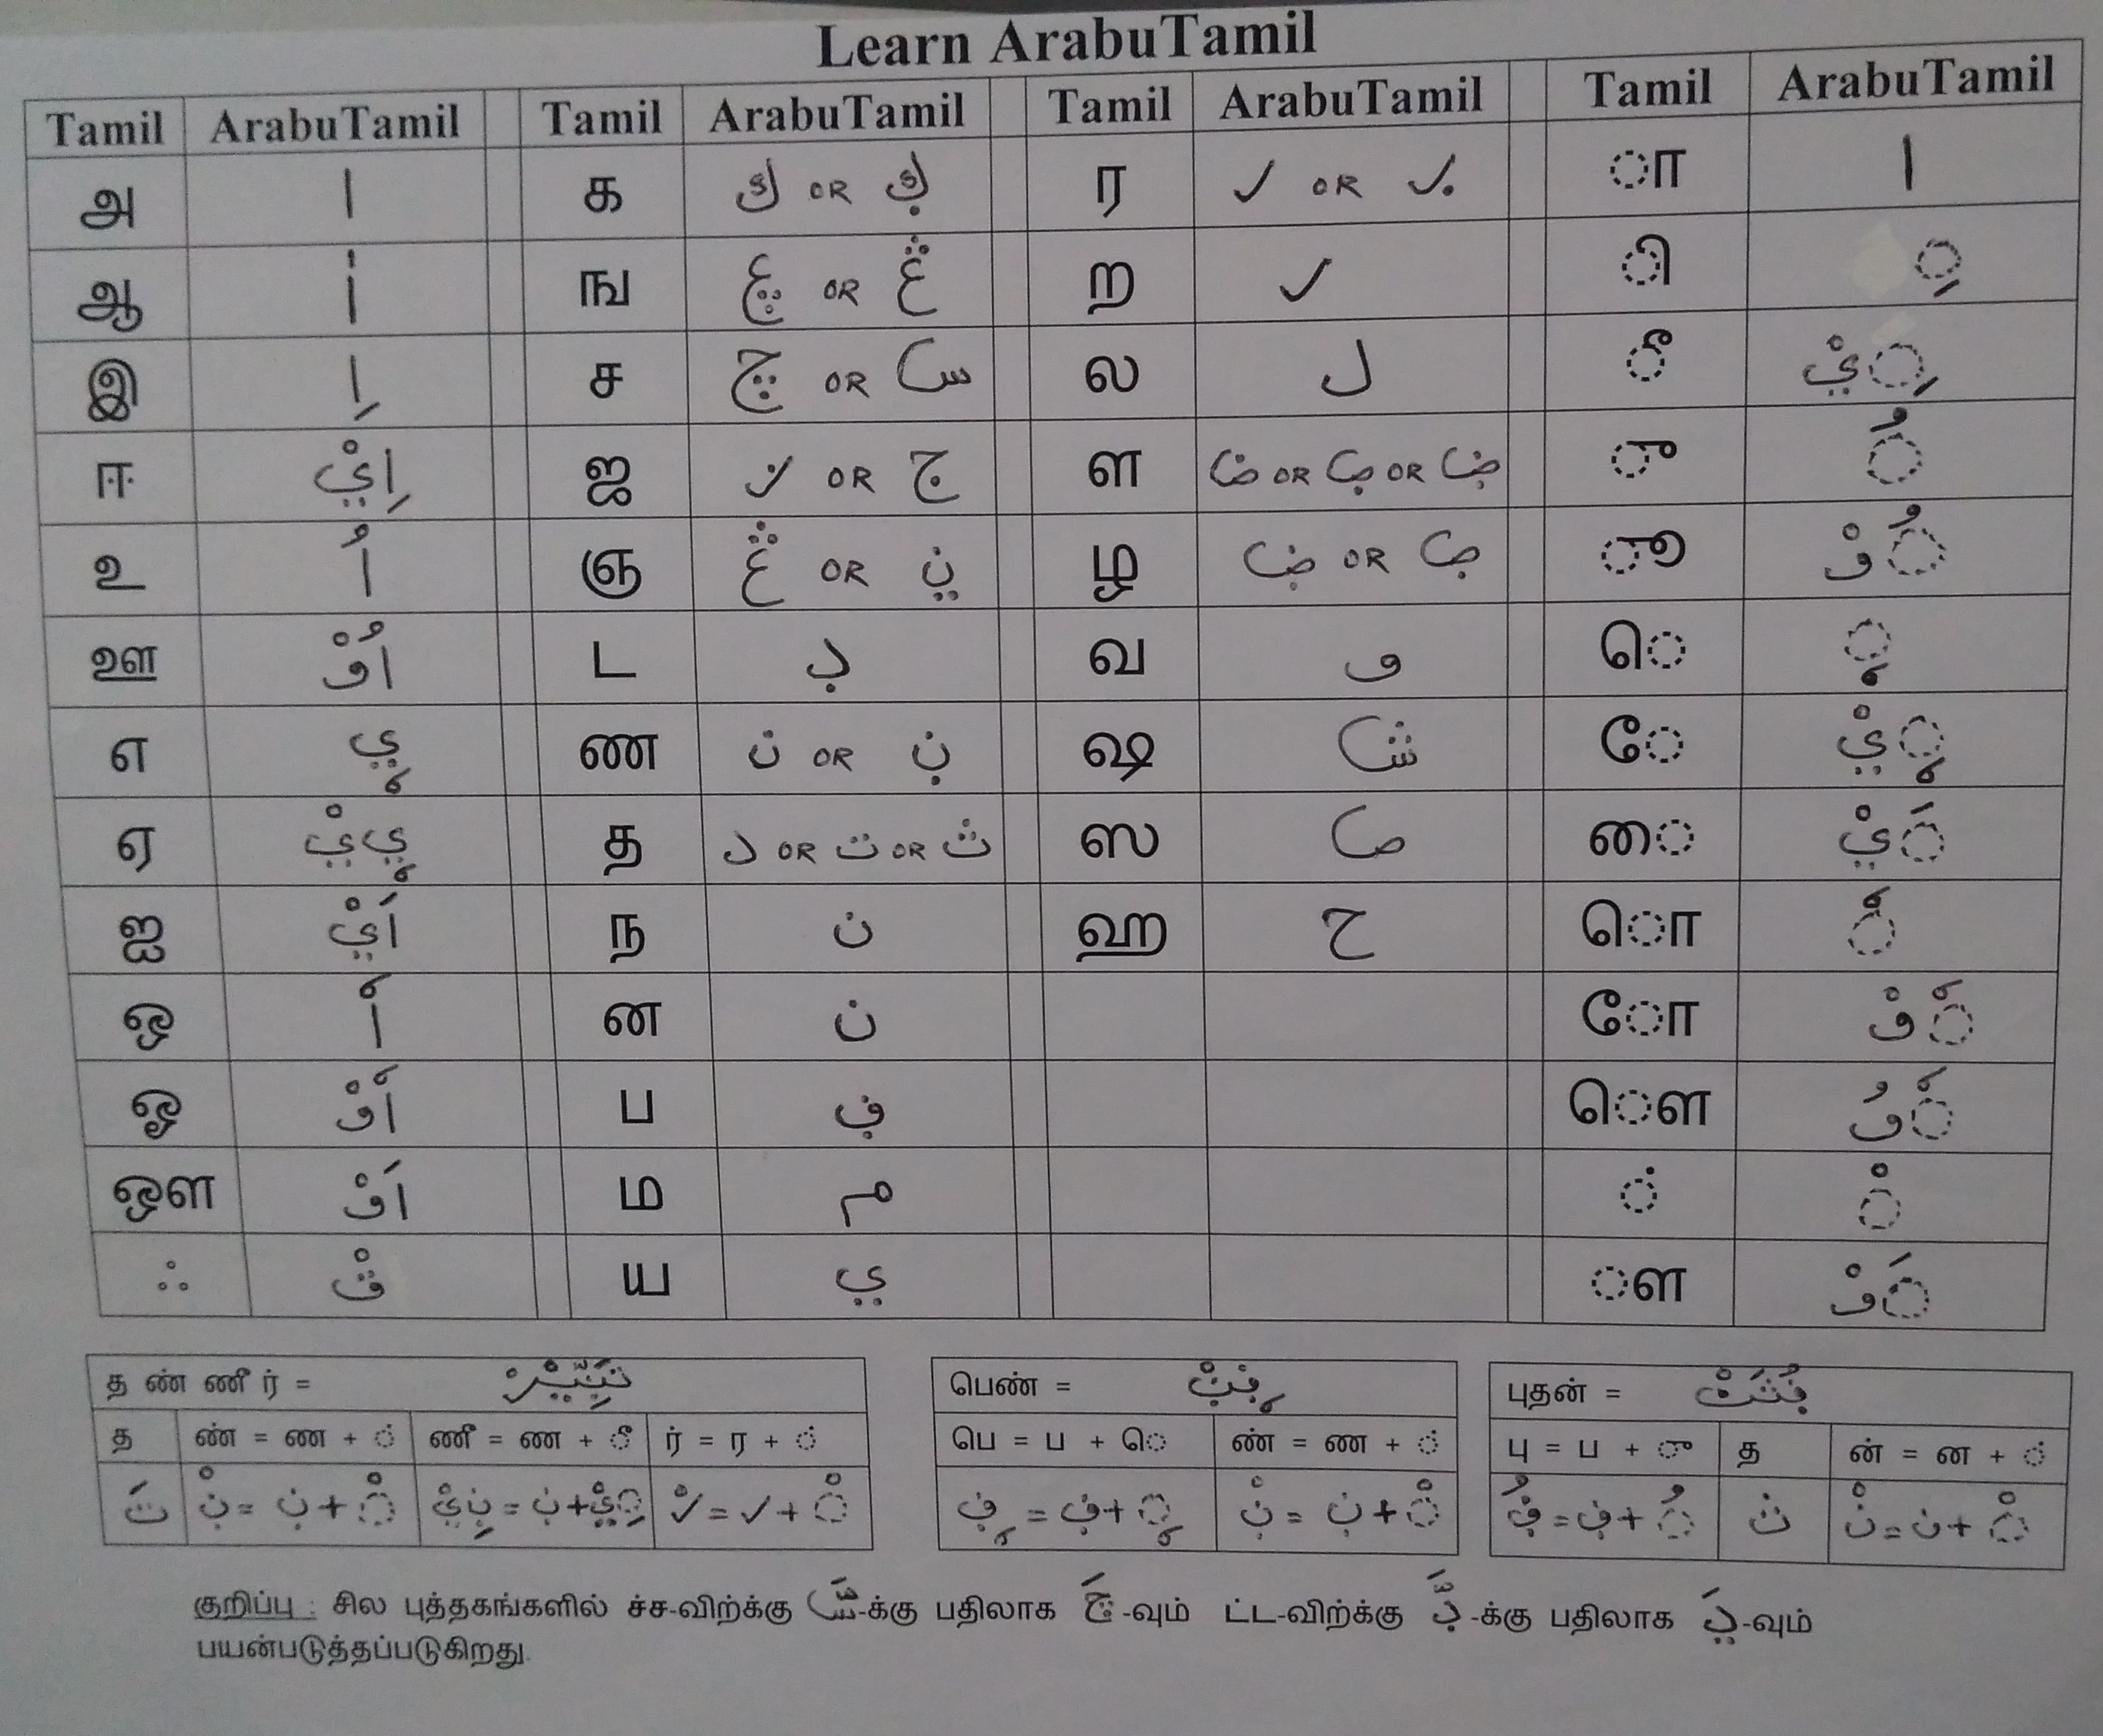 Learn ArabuTamil
Tamil ArabuTamil Tamil ArabuTamil Tamil ArabuTamil Tamil ArabuTamil
அ ا க ك OR ر OR ா ا
ஆ ங OR ற ر ி ِ
இ اِ ச OR س ல ل ீ ِيْ
ஈ اِيْ ஜ OR ج ள OR OR ு ُ
உ اُ ஞ OR ழ OR ூ ُوْ
ஊ اُوْ ட வ و ெ
எ ண ن OR ஷ ش ே
ஏ த د OR ت OR ث ஸ ص ை َيْ
ஐ اَيْ ந ن ஹ ح ொ
ஒ ன ن ோ
ஓ ப ڢ ௌ
ஔ اَوْ ம م ஂ ْ
ஃ قْ ய ي ள َوْ
த ண் ணீ ர் =
த ண் = ண + ஂ ணீ = ண + ீ ர் = ர + ஂ
تَ = + ْ = + رْ = ر + ْ
பெண் =
பெ = ப + ெ ண் = ண + ஂ
= ڢ + = + ْ
புதன் =
பு = ப + ு த ன் = ன + ஂ
ڢُ = ڢ + ُ ث نْ = ن + ْ
குறிப்பு : சில புத்தகங்களில் ச்ச-விற்க்கு سَّ-க்கு பதிலாக -வும் ட்ட-விற்க்கு -க்கு பதிலாக -வும்
பயன்படுத்தப்படுகிறது.